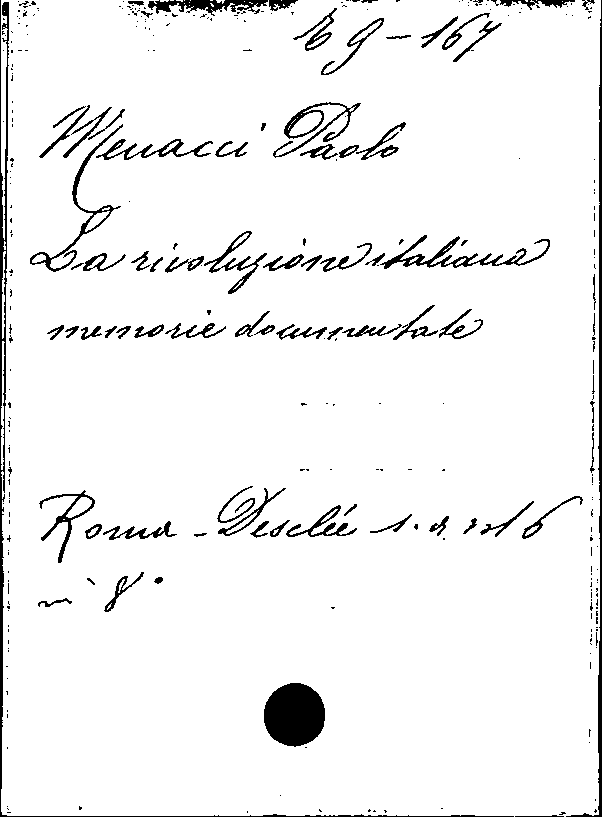 E 9 - 167
Menacci Paolo
La rivoluzione italiana
memorie documentate
Roma - Desclée s. a.
in 8°